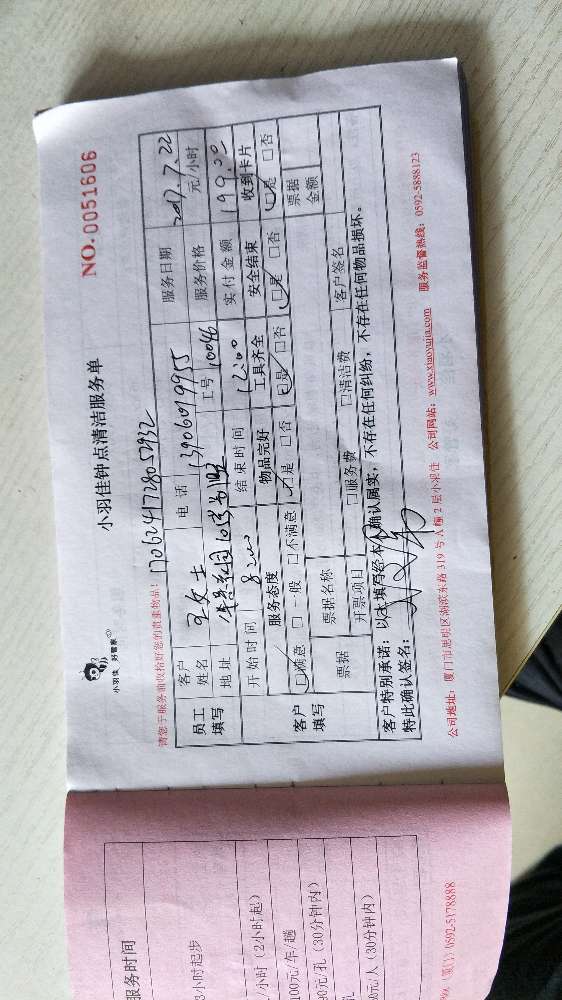 小羽佳 好管家
小羽佳钟点清洁服务单
NO.0051606
请您于服务前收拾好您的贵重物品!
1706241728057932
员工填写
客户姓名 王女士 电话 13906019955 服务日期 2017.7.22
地址 工号 10046 服务价格 元/小时
开始时间 8:00 结束时间 12:00 实付金额 199.00
客户填写
服务态度 物品完好 工具齐全 安全结束 收到卡片
☑满意 □一般 □不满意 ☑是 □否 ☑是 □否 ☑是 □否 ☑是 □否
票据 票据名称 票据金额
开票项目 □服务费 □清洁费 客户签名
客户特别承诺:以上填写经本人确认属实,不存在任何纠纷,不存在任何物品损坏。
特此确认签名:
公司地址:厦门市思明区湖滨东路319号A幢2层小羽佳 公司网站:www.xiaoyujia.com 服务监督热线:0592-5888123
服务时间
3小时起步
/小时(2小时起)
100元/车/趟
30元/孔(30分钟内)
孔
30元/人(30分钟内)
(厦门) 0592-5178888